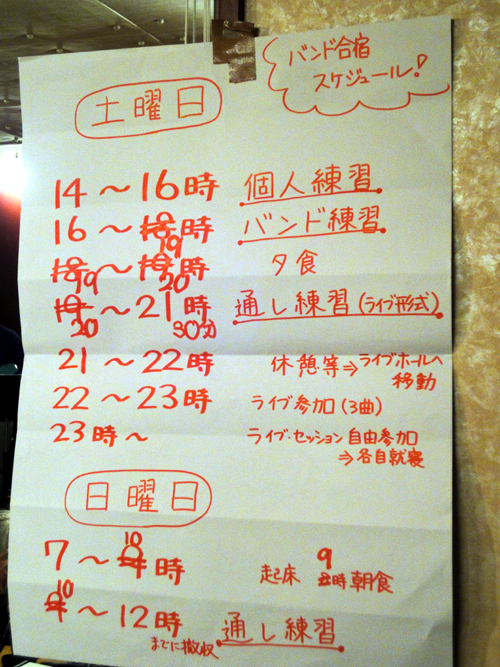 バンド合宿
スケジュール!
土曜日
14〜16時 個人練習
16〜19時 バンド練習
19〜20時 夕食
20〜21時30分 通し練習(ライブ形式)
21〜22時 休憩等⇒ライブホールへ
移動
22〜23時 ライブ参加(3曲)
23時〜 ライブ・セッション自由参加
⇒各自就寝
日曜日
7〜10時 起床 9時朝食
10〜12時 通し練習
までに撤収